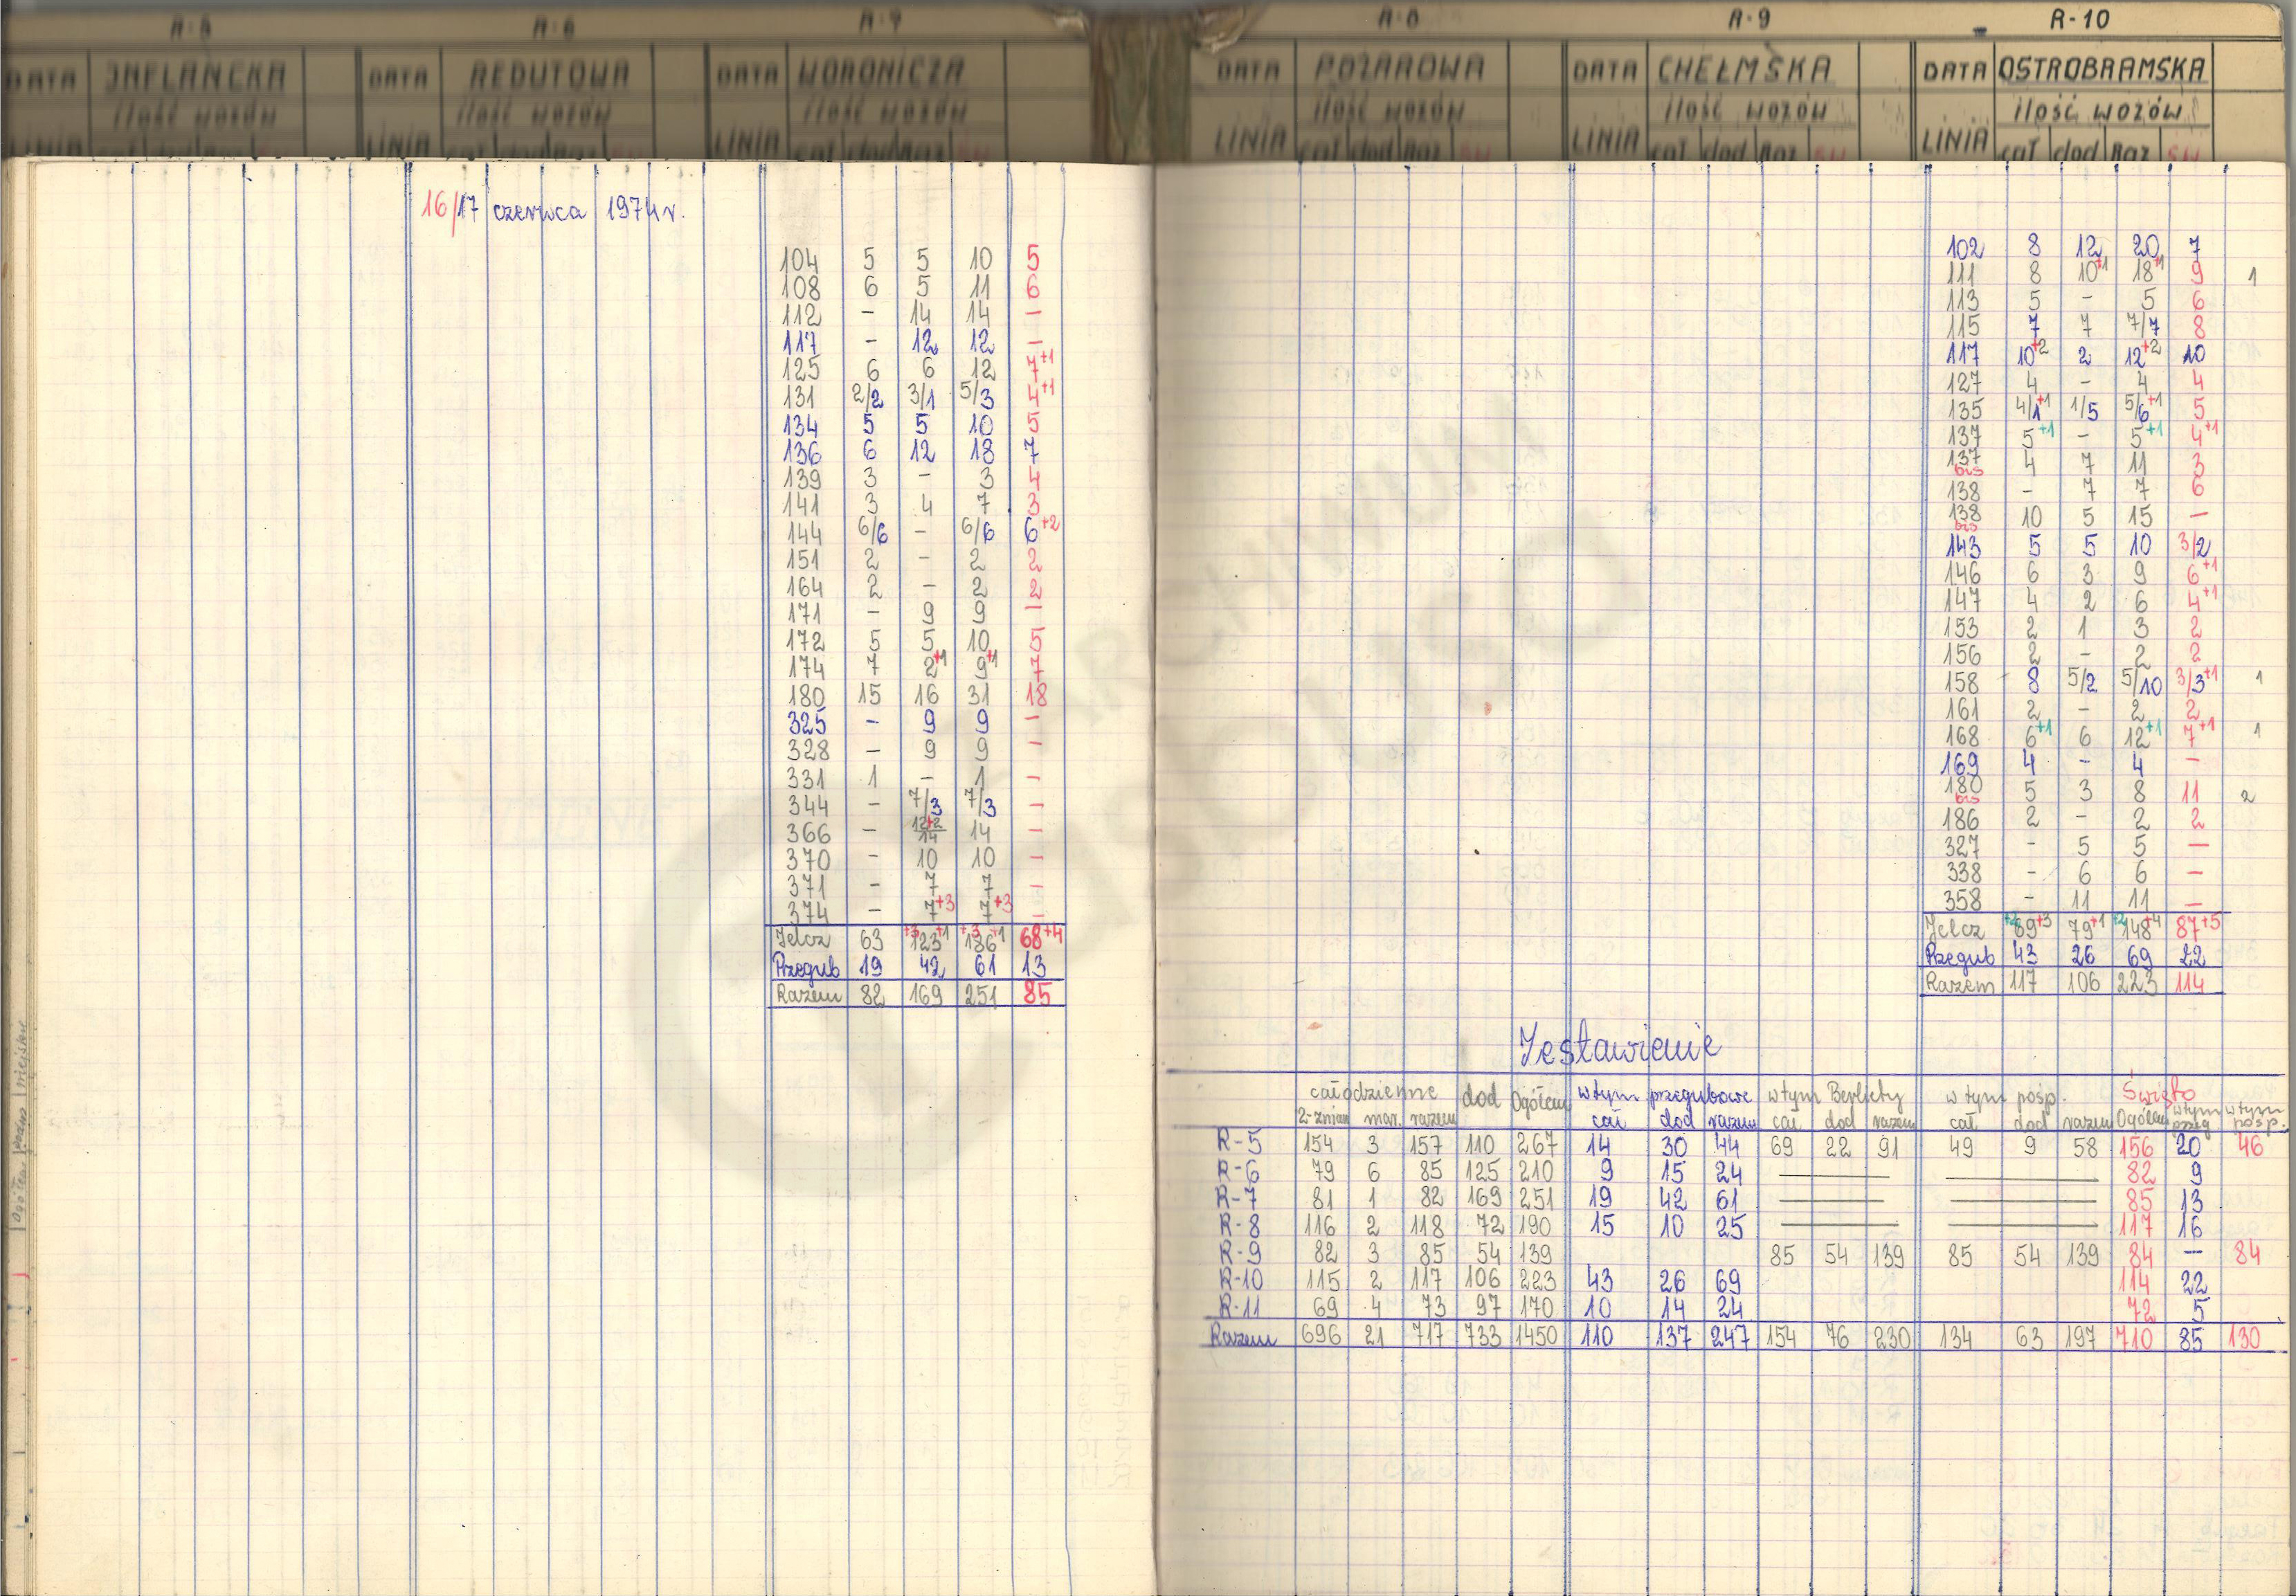 R-5 R-6 R-7 R-8 R-9 R-10
DATA INFLANCKA DATA REDUTOWA DATA WORONICZA DATA POŻAROWA DATA CHEŁMSKA DATA OSTROBRAMSKA
ilość wozów ilość wozów ilość wozów ilość wozów ilość wozów ilość wozów
LINIA cał dod Raz LINIA cał dod Raz LINIA cał dod Raz św LINIA cał dod Raz św LINIA cał dod Raz św LINIA cał dod Raz św
16/17 czerwca 1974 r.
104 5 5 10 5
108 6 5 11 6
112 – 14 14 –
117 – 12 12 –
125 6 6 12 7+1
131 2/2 3/1 5/3 4+1
134 5 5 10 5
136 6 12 18 7
139 3 – 3 4
141 3 4 7 3
144 6/6 – 6/6 6+2
151 2 – 2 2
164 2 – 2 2
171 – 9 9 –
172 5 5 10 5
174 7 2+1 9+1 7
180 15 16 31 18
325 – 9 9 –
328 – 9 9 –
331 1 – 1 –
344 – 7/3 7/3 –
366 – 12+2/14 14 –
370 – 10 10 –
371 – 7 7 –
374 – 7+3 7+3 –
Jelcz 63 +3 123 +1 +3 186 +1 68+4
Przegub 19 42 61 13
Razem 82 169 251 85
102 8 12 20 7
111 8 10+1 18+1 9 1
113 5 – 5 6
115 7 7 7/7 8
117 10+2 2 12+2 10
127 4 – 4 4
135 4/1+1 1/5 5/6+1 5
137 5+1 – 5+1 4+1
137 bis 4 7 11 3
138 – 7 7 6
138 bis 10 5 15 –
143 5 5 10 3/2
146 6 3 9 6+1
147 4 2 6 4+1
153 2 1 3 2
156 2 – 2 2
158 8 5/2 5/10 3/3+1 1
161 2 – 2 2
168 6+1 6 12+1 7+1 1
169 4 – 4 –
180 bis 5 3 8 11 2
186 2 – 2 2
327 – 5 5 –
338 – 6 6 –
358 – 11 11 –
Jelcz +2 69+3 79+1 +2 148+4 87+5
Przegub 43 26 69 22
Razem 117 106 223 114
Zestawienie
całodzienne dod Ogółem w tym przegubowe w tym Berliety w tym pośp. Święto
2-zmian mar. razem cał dod razem cał dod razem cał dod razem Ogółem w tym przeg w tym pośp.
R-5 154 3 157 110 267 14 30 44 69 22 91 49 9 58 156 20 46
R-6 79 6 85 125 210 9 15 24 — — 82 9
R-7 81 1 82 169 251 19 42 61 — — 85 13
R-8 116 2 118 72 190 15 10 25 — — 117 16
R-9 82 3 85 54 139 85 54 139 85 54 139 84 — 84
R-10 115 2 117 106 223 43 26 69 114 22
R-11 69 4 73 97 170 10 14 24 72 5
Razem 696 21 717 733 1450 110 137 247 154 76 230 134 63 197 710 85 130